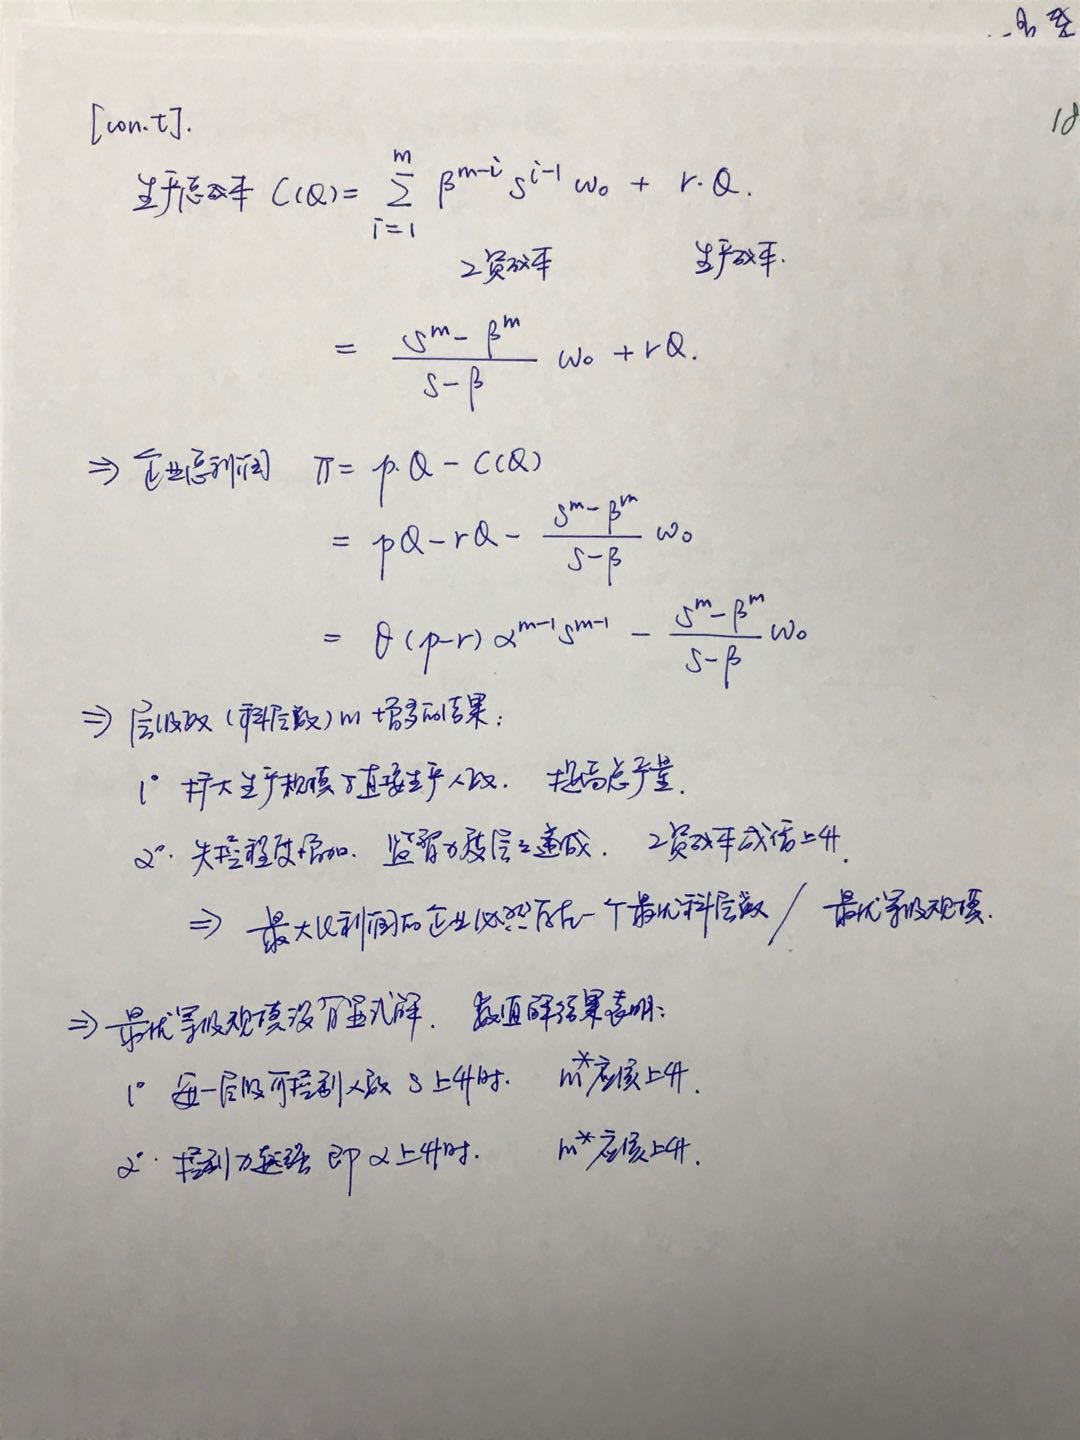 18
[con.t].
生产总成本 C(Q) = \sum_{i=1}^{m} β^{m-i} s^{i-1} w₀ + r·Q.
工资成本 生产成本.
= \frac{s^m - β^m}{s-β} w₀ + rQ.
⇒ 企业总利润 π = p·Q - C(Q)
= pQ - rQ - \frac{s^m - β^m}{s-β} w₀
= θ(p-r) α^{m-1} s^{m-1} - \frac{s^m - β^m}{s-β} w₀
⇒ 层级数(科层数) m 增多的结果:
1° 扩大生产规模 直接生产人数. 提高总产量.
2°. 失控程度增加. 监督力度层层递减. 工资成本成倍上升.
⇒ 最大化利润的企业必然存在一个最优科层数 / 最优等级规模.
⇒ 最优等级规模没有显式解. 数值解结果表明:
1° 每一层级可控制人数 s 上升时. m* 应该上升.
2°. 控制力越强 即 α 上升时. m* 应该上升.